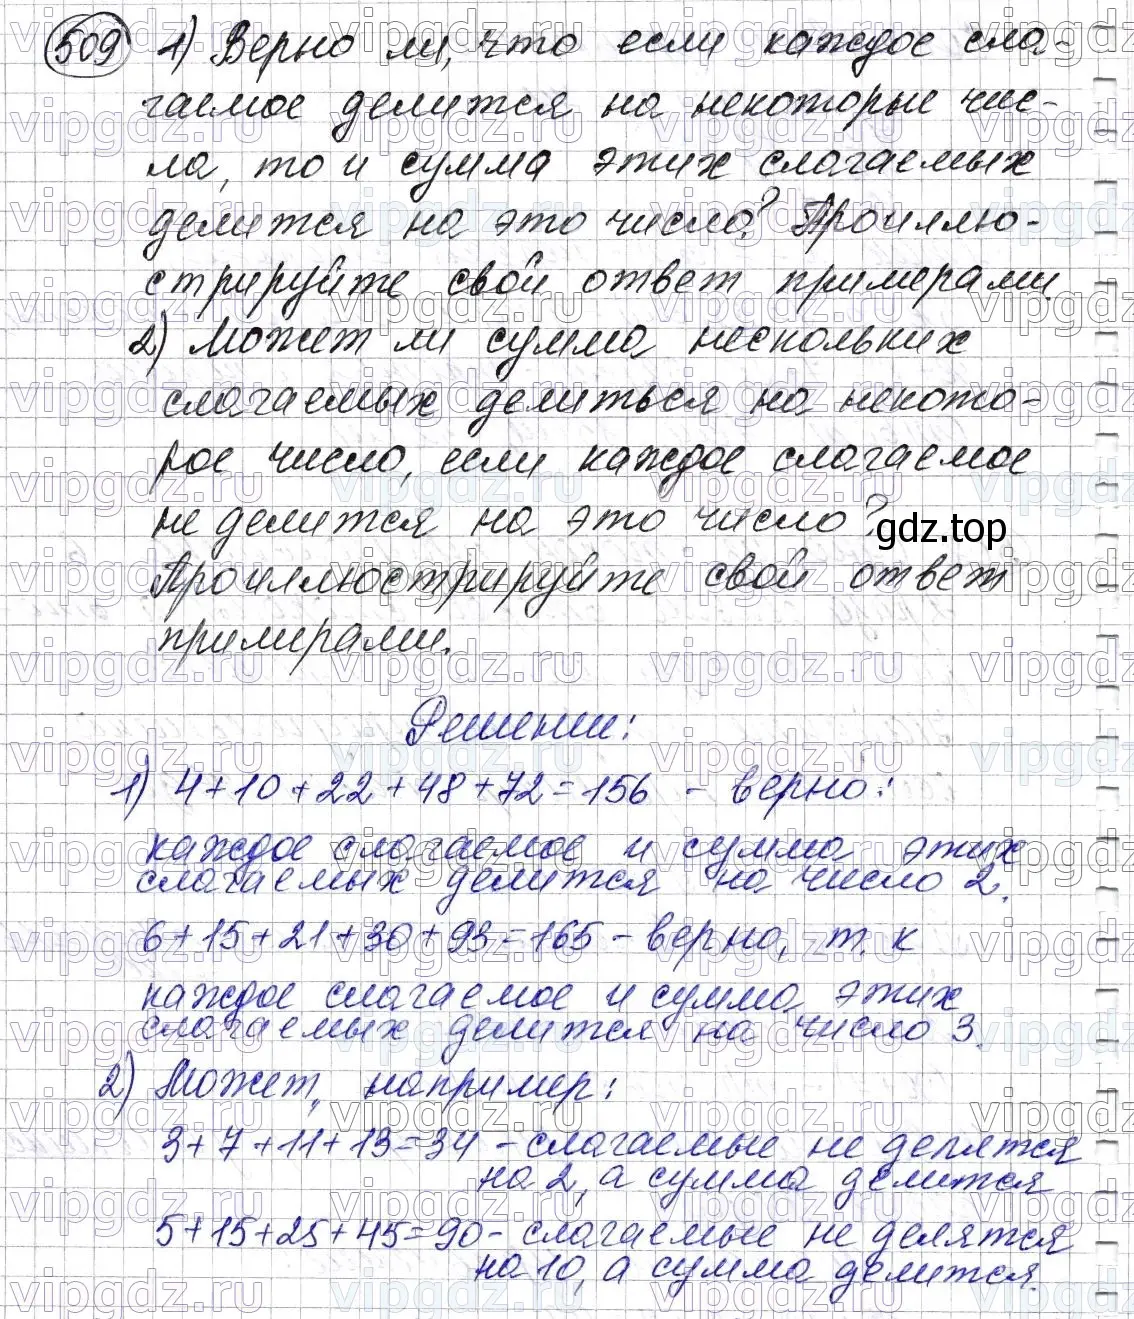 509 1) Верно ли, что если каждое сла-
гаемое делится на некоторые чис-
ла, то и сумма этих слагаемых
делится на это число? Проиллю-
стрируйте свой ответ примерами.
2) Может ли сумма нескольких
слагаемых делиться на некото-
рое число, если каждое слагаемое
не делится на это число?
gdz.top
Проиллюстрируйте свой ответ
примерами.
Решении:
1) 4+10+22+48+72=156 - верно:
каждое слагаемое и сумма этих
слагаемых делится на число 2.
6+15+21+30+93=165 - верно, т.к
каждое слагаемое и сумма этих
слагаемых делится на число 3.
2) Может, например:
3+7+11+13=34 - слагаемые не делятся
на 2, а сумма делится
5+15+25+45=90 - слагаемые не делятся
на 10, а сумма делится.
vipgdz.ru